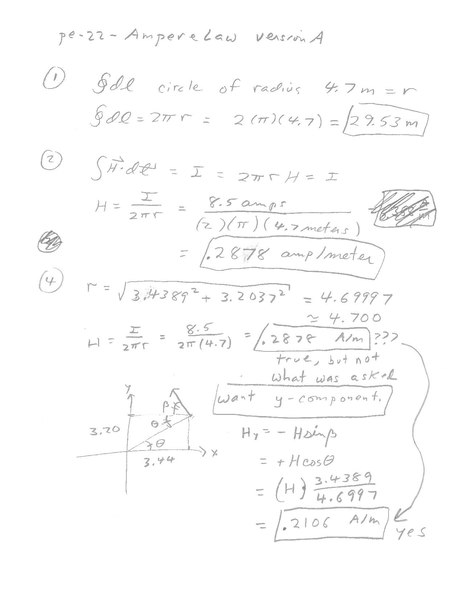 pe-22 - Ampere Law version A
① ∮dl circle of radius 4.7 m = r
∮dl = 2πr = 2(π)(4.7) = 29.53 m
② ∫H⃗·dℓ⃗ = I = 2πr H = I
H = I/2πr = 8.5 amps/(2)(π)(4.7 meters)
= .2878 amp/meter
④ r = √3.4389² + 3.2037² = 4.69997
≃ 4.700
H = I/2πr = 8.5/2π(4.7) = .2878 A/m ???
true, but not
what was asked
want y-component.
y
β
θ
3.20
θ
x
3.44
Hy = - H sinβ
= + H cosθ
= (H) · 3.4389/4.6997
= .2106 A/m
yes